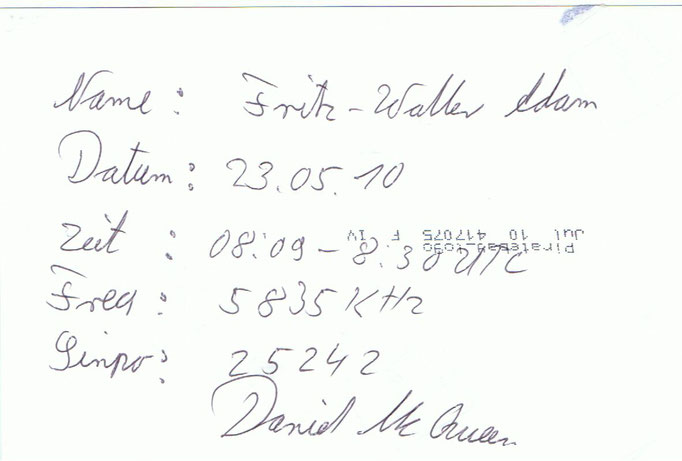 Name: Fritz-Walter Adam
Datum: 23.05.10
Zeit : 08:09 - 8:30 UTC
Piratebay_to90
Jul 10 417075 F IV
Freq: 5835 KHz
Sinpo: 25242
David McQueen